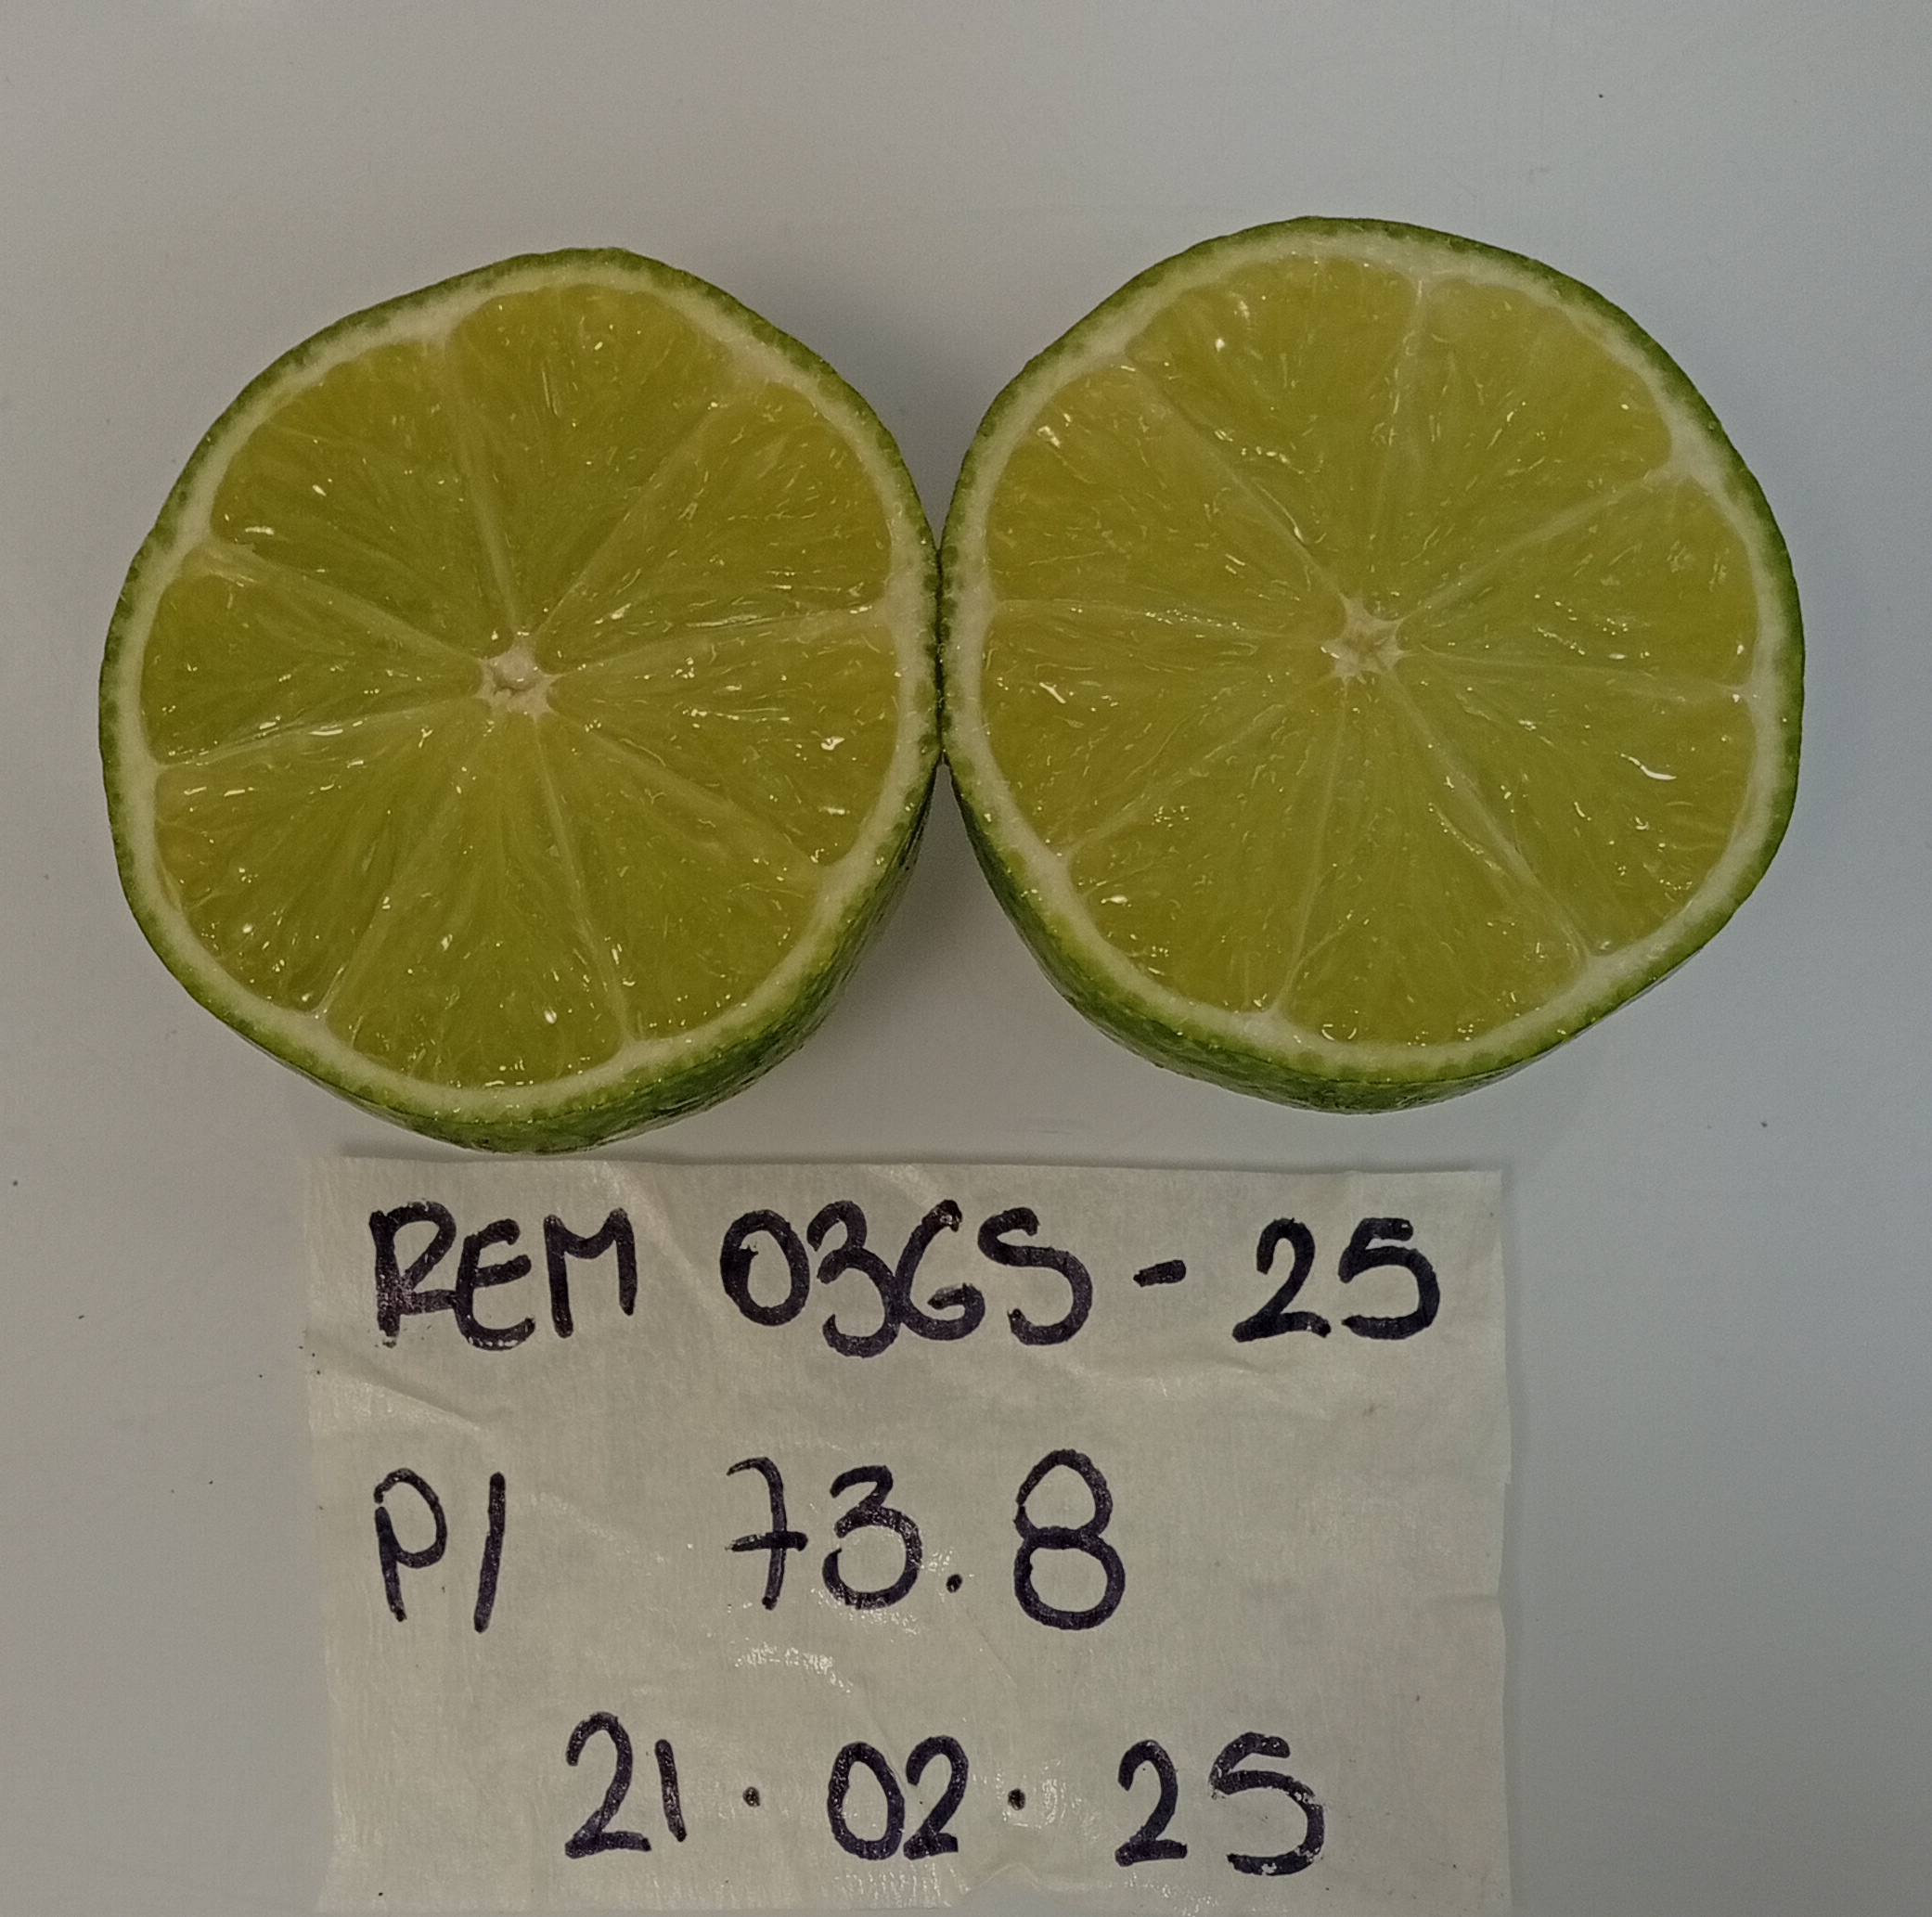 REM 036S - 25
P/ 73.8
21. 02. 25